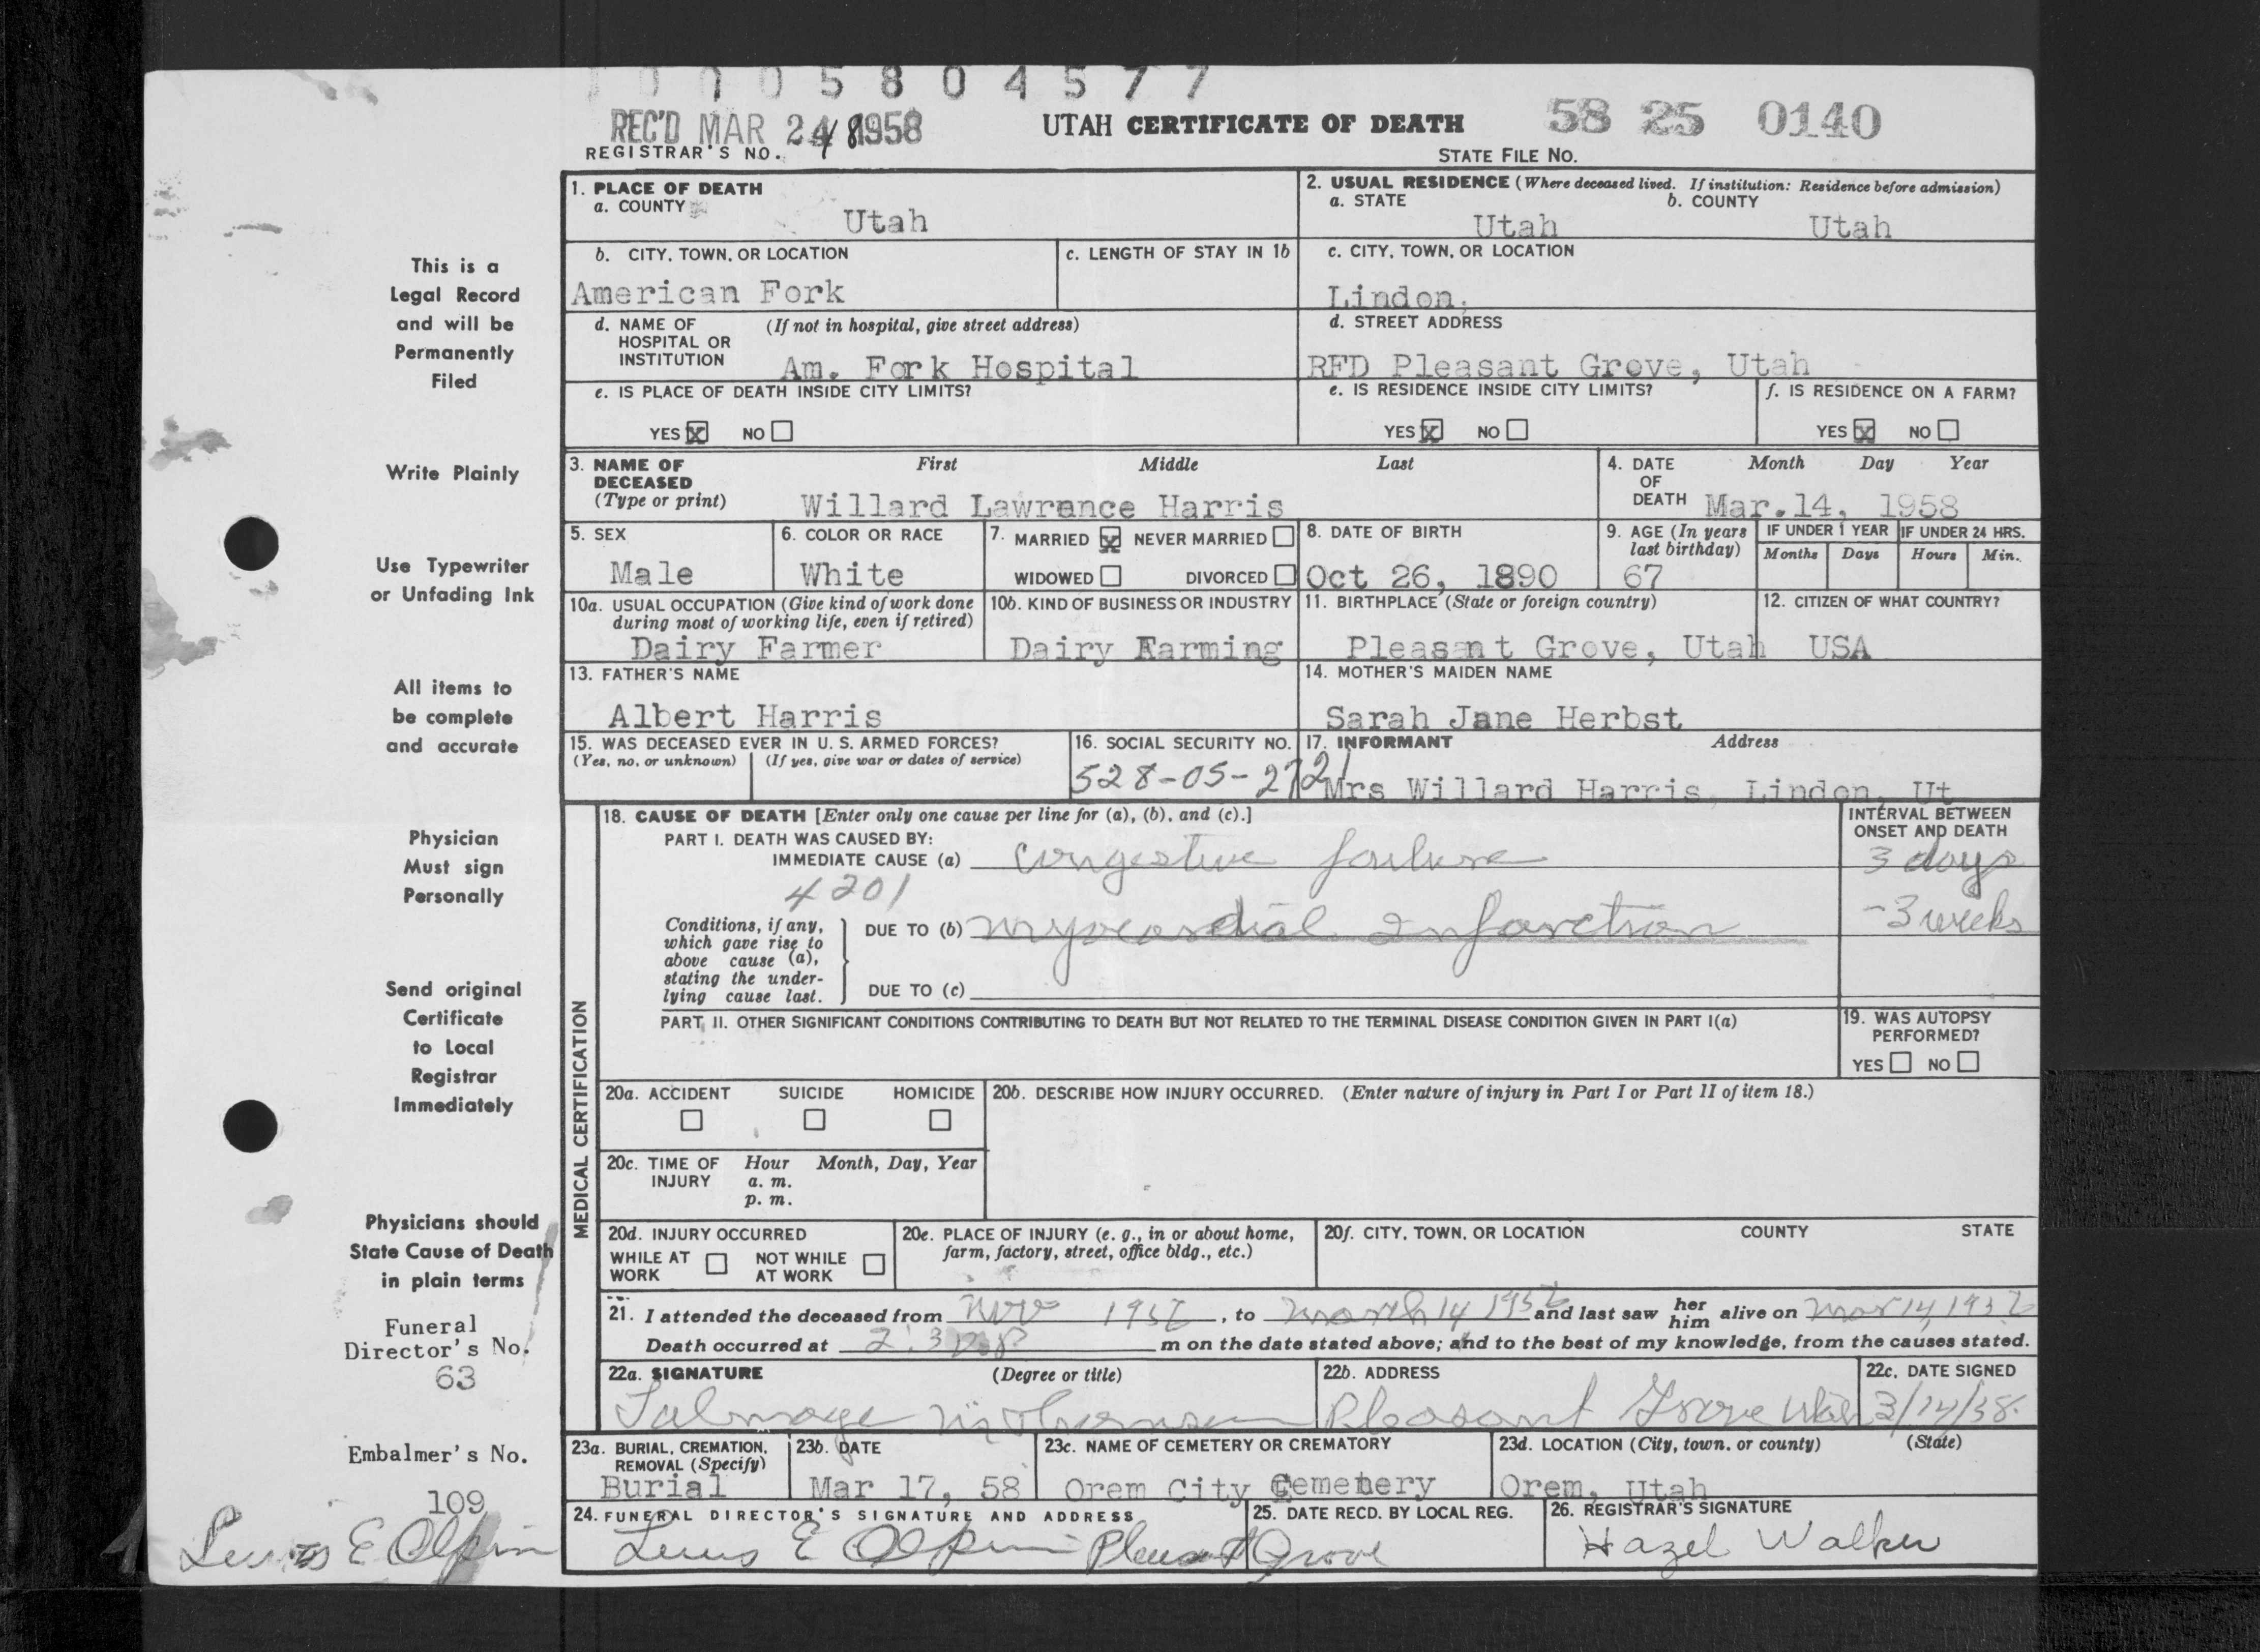 0 0 0 5 8 0 4 5 7 7
REC'D MAR 24 1958 UTAH CERTIFICATE OF DEATH 58 25 0140
REGISTRAR'S NO. 48 STATE FILE NO.
This is a
Legal Record
and will be
Permanently
Filed
Write Plainly
Use Typewriter
or Unfading Ink
All items to
be complete
and accurate
Physician
Must sign
Personally
Send original
Certificate
to Local
Registrar
Immediately
Physicians should
State Cause of Death
in plain terms
Funeral
Director's No.
63
Embalmer's No.
109
Lewis E Olpin
1. PLACE OF DEATH
a. COUNTY
Utah
2. USUAL RESIDENCE (Where deceased lived. If institution: Residence before admission)
a. STATE b. COUNTY
Utah Utah
b. CITY, TOWN, OR LOCATION c. LENGTH OF STAY IN 1b
American Fork
c. CITY, TOWN, OR LOCATION
Lindon.
d. NAME OF (If not in hospital, give street address)
HOSPITAL OR
INSTITUTION Am. Fork Hospital
d. STREET ADDRESS
RFD Pleasant Grove, Utah
e. IS PLACE OF DEATH INSIDE CITY LIMITS?
YES X NO
e. IS RESIDENCE INSIDE CITY LIMITS?
YES X NO
f. IS RESIDENCE ON A FARM?
YES X NO
3. NAME OF First Middle Last
DECEASED
(Type or print) Willard Lawrence Harris
4. DATE Month Day Year
OF
DEATH Mar.14, 1958
5. SEX
Male
6. COLOR OR RACE
White
7. MARRIED X NEVER MARRIED
WIDOWED DIVORCED
8. DATE OF BIRTH
Oct 26, 1890
9. AGE (In years
last birthday)
67
IF UNDER 1 YEAR IF UNDER 24 HRS.
Months Days Hours Min.
10a. USUAL OCCUPATION (Give kind of work done
during most of working life, even if retired)
Dairy Farmer
10b. KIND OF BUSINESS OR INDUSTRY
Dairy Farming
11. BIRTHPLACE (State or foreign country)
Pleasant Grove, Utah
12. CITIZEN OF WHAT COUNTRY?
USA
13. FATHER'S NAME
Albert Harris
14. MOTHER'S MAIDEN NAME
Sarah Jane Herbst
15. WAS DECEASED EVER IN U. S. ARMED FORCES?
(Yes, no, or unknown) (If yes, give war or dates of service)
16. SOCIAL SECURITY NO.
528-05-2721
17. INFORMANT Address
Mrs Willard Harris, Lindon, Ut
MEDICAL CERTIFICATION
18. CAUSE OF DEATH [Enter only one cause per line for (a), (b), and (c).]
INTERVAL BETWEEN
ONSET AND DEATH
PART I. DEATH WAS CAUSED BY:
IMMEDIATE CAUSE (a) Congestive failure 3 days
4201
Conditions, if any,
which gave rise to
above cause (a),
stating the under-
lying cause last.
DUE TO (b) myocardial Infarction -3 weeks
DUE TO (c)
PART II. OTHER SIGNIFICANT CONDITIONS CONTRIBUTING TO DEATH BUT NOT RELATED TO THE TERMINAL DISEASE CONDITION GIVEN IN PART I(a)
19. WAS AUTOPSY
PERFORMED?
YES NO
20a. ACCIDENT SUICIDE HOMICIDE
20b. DESCRIBE HOW INJURY OCCURRED. (Enter nature of injury in Part I or Part II of item 18.)
20c. TIME OF Hour Month, Day, Year
INJURY a. m.
p. m.
20d. INJURY OCCURRED
WHILE AT NOT WHILE
WORK AT WORK
20e. PLACE OF INJURY (e. g., in or about home,
farm, factory, street, office bldg., etc.)
20f. CITY, TOWN, OR LOCATION COUNTY STATE
21. I attended the deceased from Nov , to March 14 and last saw her him alive on Mar 14,
Death occurred at m on the date stated above; and to the best of my knowledge, from the causes stated.
22a. SIGNATURE (Degree or title)
Talmage
22b. ADDRESS
Pleasant Grove Utah
22c. DATE SIGNED
3/14/58.
23a. BURIAL, CREMATION,
REMOVAL (Specify)
Burial
23b. DATE
Mar 17, 58
23c. NAME OF CEMETERY OR CREMATORY
Orem City Cemetery
23d. LOCATION (City, town, or county) (State)
Orem, Utah
24. FUNERAL DIRECTOR'S SIGNATURE AND ADDRESS
Lewis E Olpin Pleasant Grove
25. DATE RECD. BY LOCAL REG.
26. REGISTRAR'S SIGNATURE
Hazel Walker